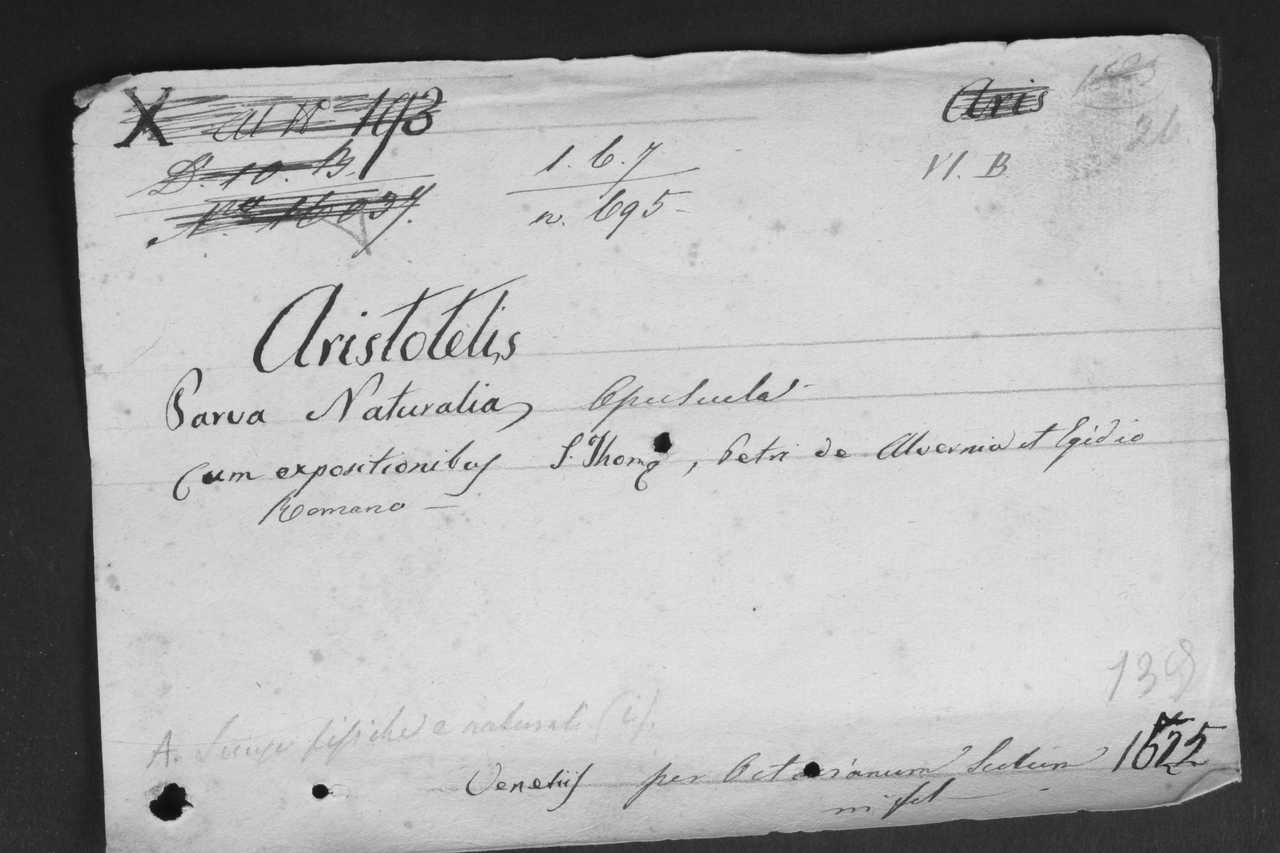 X 193
Aris
D. 10. B.
1. 6. 7
VI. B
26
N.ro 16037.
n. 695-
Aristotelis
Parva Naturalia, Opuscula
Cum expositionibus S. Thomę, Petri de Alvernia et Egidio
Romano —
139
A. Scienze fisiche e naturali (i).
Venetiis per Octavianum Scotum 1525
in fol